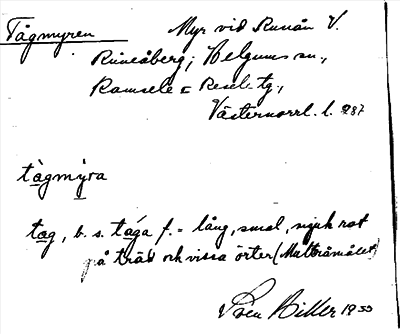 Tågmyren
Myr vid Runån V.
Runeåberg; Helgums sn.,
Ramsele o Resele tg.,
Västernorrl. l. 287
tàgmýra
tag, b. s. tága f. = lång, smal, mjuk rot
på träd och vissa örter (Multråmålet)
Sven Hiller 1935